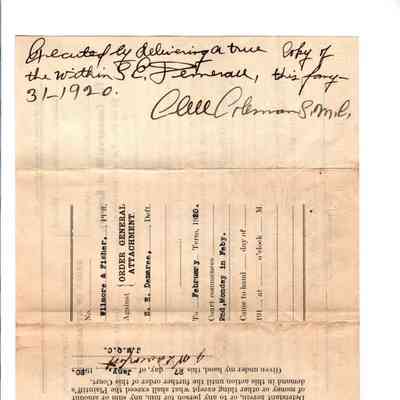 Executed by delivering a true Copy of
the within S. E. Demaree, this Jany-
31-1920.
Coleman S.M.C.
No.
Filmore & Fisher, Plff.
Against
ORDER GENERAL
ATTACHMENT.
S. E. Demaree, Deft.
To February Term, 1920.
Court commences
2nd, Monday in Feby.
Came to hand day of
191 at o'clock M
Defendant herein, or to any person for him, any sum or amount
of money or other thing except what shall exceed the Plaintiff's
demand in this action until the further order of this Court.
Given under my hand, this 27 day, of Jany, 1920.
J.M.Q.C.